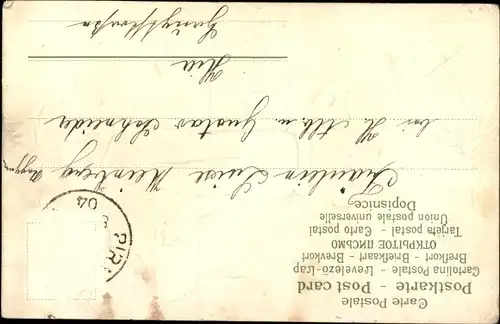 Carte Postale
Postkarte - Post card
Cartolina Postale - Levelező-Lap
Brefkort - Briefkaart - Brevkort
ОТКРЫТОЕ ПИСЬМО
Tarjeta postal - Carto postal
Union postale universelle
Dopisnice.
PIR
04
Fräulein Luise Kleinberg
bei H. Alb. u. Gustav Schneider
Hier
Hauptstraße